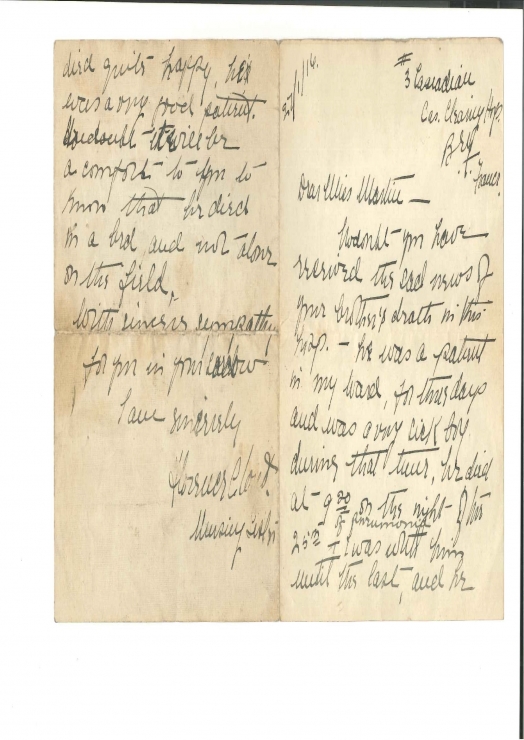 27/1/16.
# 3 Canadian
Cas. Clearing Hosp.
B.E.F.
France.
Dear Miss Martin —
No doubt you have
received the sad news of
your brother's death in this
hosp. — he was a patient
in my ward, for three days
and was a very sick boy
during that time, he died
at 9 30 on the night of the
25th of pneumonia
I was with him
until the last, and he
died quite happy, he
was a very good patient.
No doubt it will be
a comfort to you to
know that he died
in a bed and not alone
on the field,
With sincere sympathy
for you in your sorrow
I am sincerely
Florence
Nursing Sister